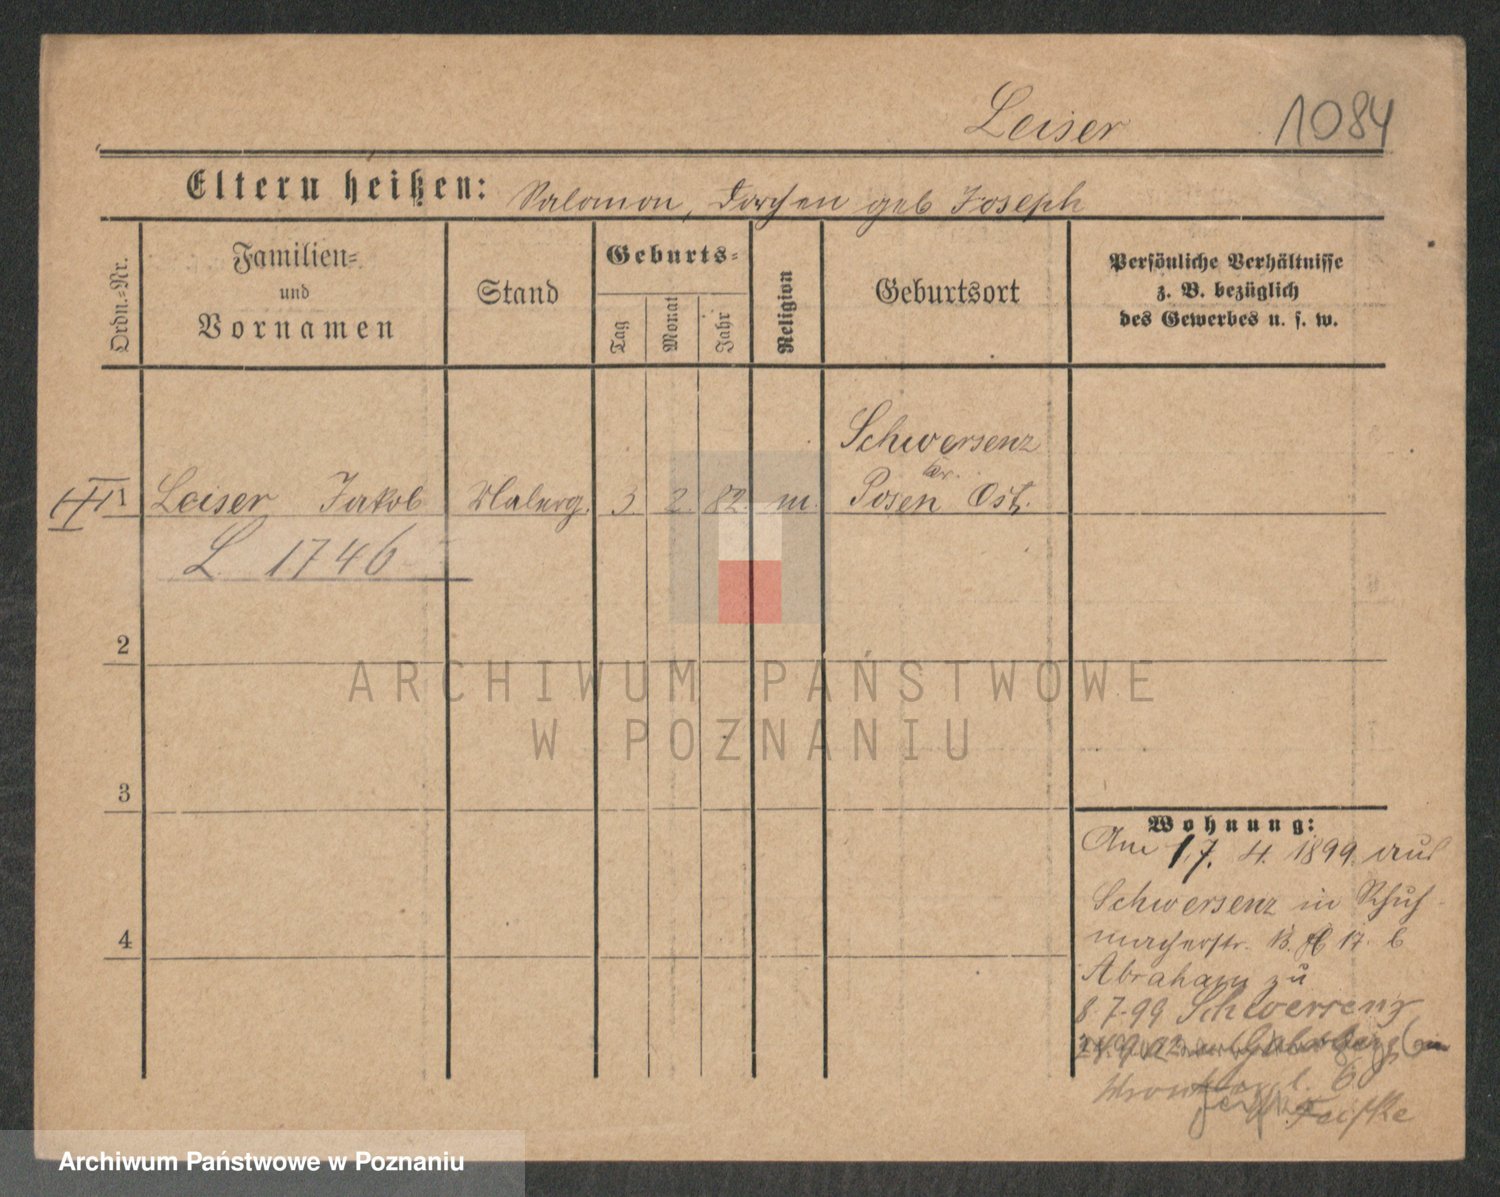 Leiser 1084
Eltern heißen: Salomon, Dorchen geb Joseph
Ordn.-Nr.
Familien-
und
Vornamen
Stand
Geburts-
Tag
Monat
Jahr
Religion
Geburtsort
Persönliche Verhältnisse
z. B. bezüglich
des Gewerbes u. s. w.
Schwersenz
Kr.
III 1 Leiser Jakob 3. 2. 82. m. Posen Ost.
L 1746
2
3
4
Wohnung:
Am 17. 4. 1899 aus
Schwersenz in Schuh-
macherstr. 13. 17. b
Abraham zu
8 7-99 Schwersenz
ARCHIWUM PAŃSTWOWE
W POZNANIU
Archiwum Państwowe w Poznaniu